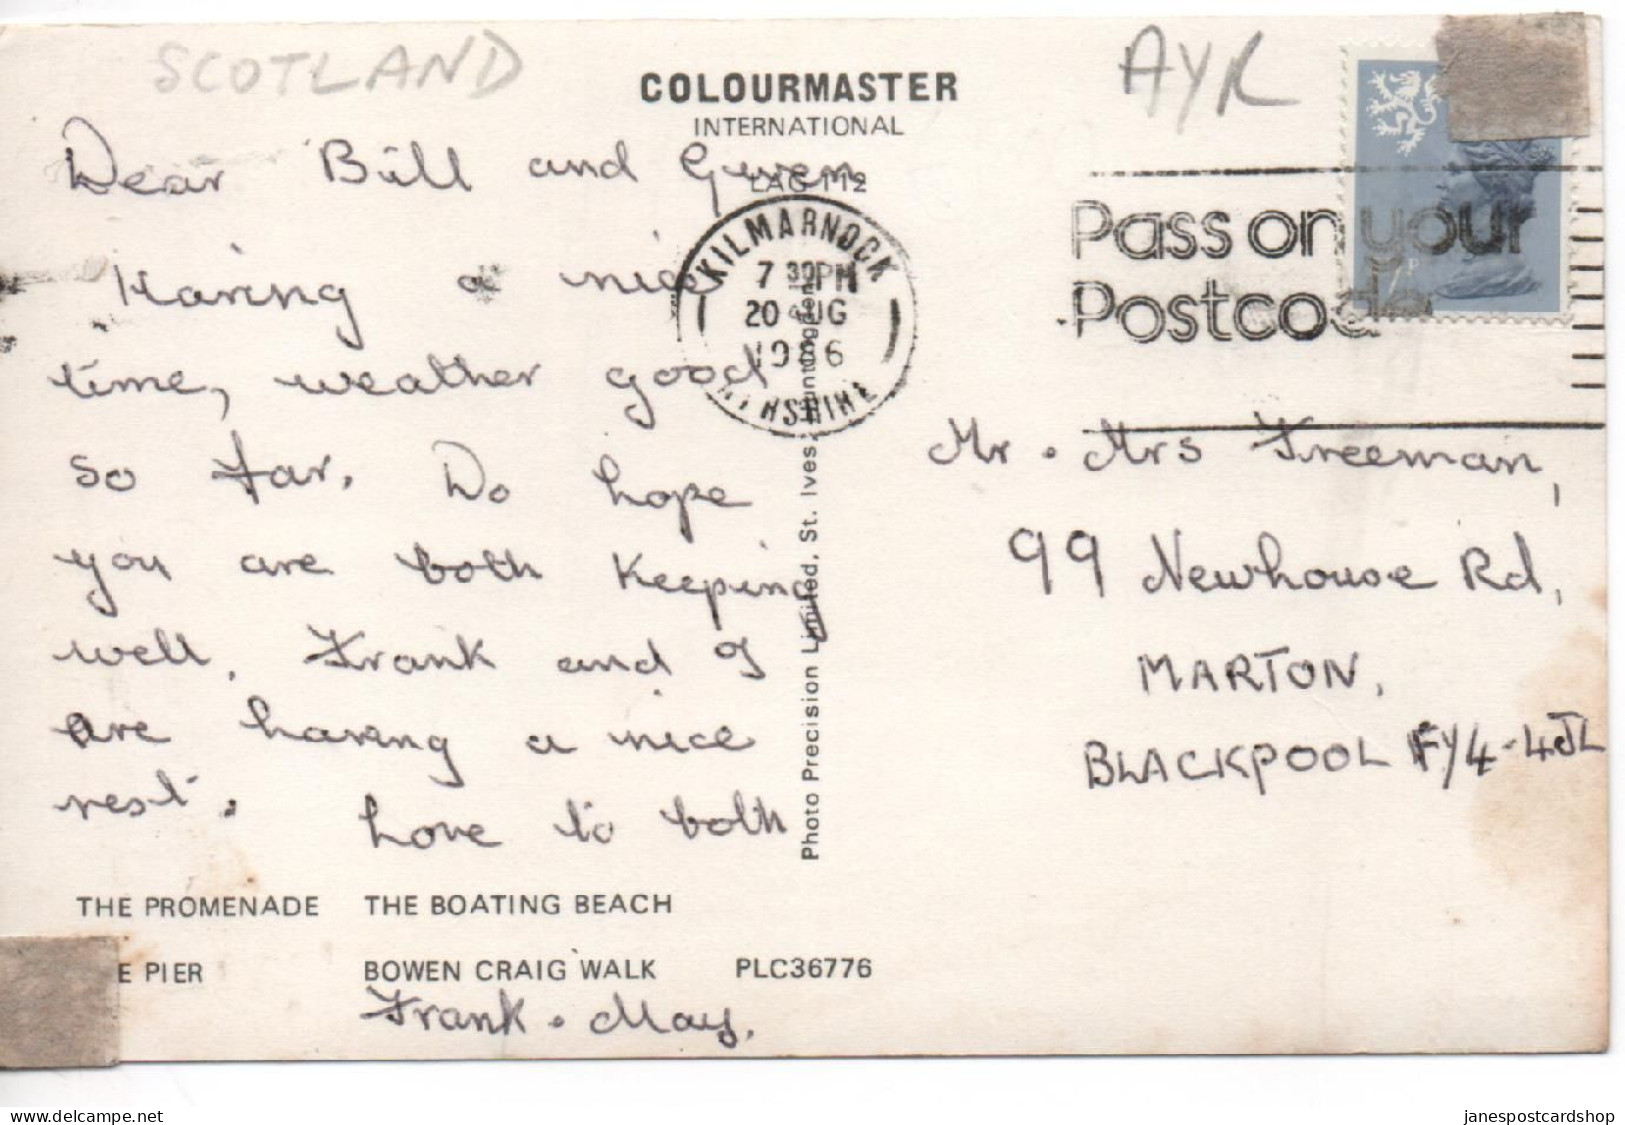 SCOTLAND
AYR
COLOURMASTER
INTERNATIONAL
LAG 112
Dear Bill and Gwen
Having a nice
time, weather good
so far. Do hope
you are both keeping
well. Frank and I
are having a nice
rest. Love to both
THE PROMENADE THE BOATING BEACH
PIER BOWEN CRAIG WALK PLC36776
Frank. May.
KILMARNOCK
7 30PM
20 AUG
1986
AYRSHIRE
Photo Precision Limited, St. Ives
Pass on your
Postcode
Mr. Mrs Freeman,
99 Newhouse Rd,
MARTON,
BLACKPOOL FY4-4JL
delcampe.net
janespostcardshop